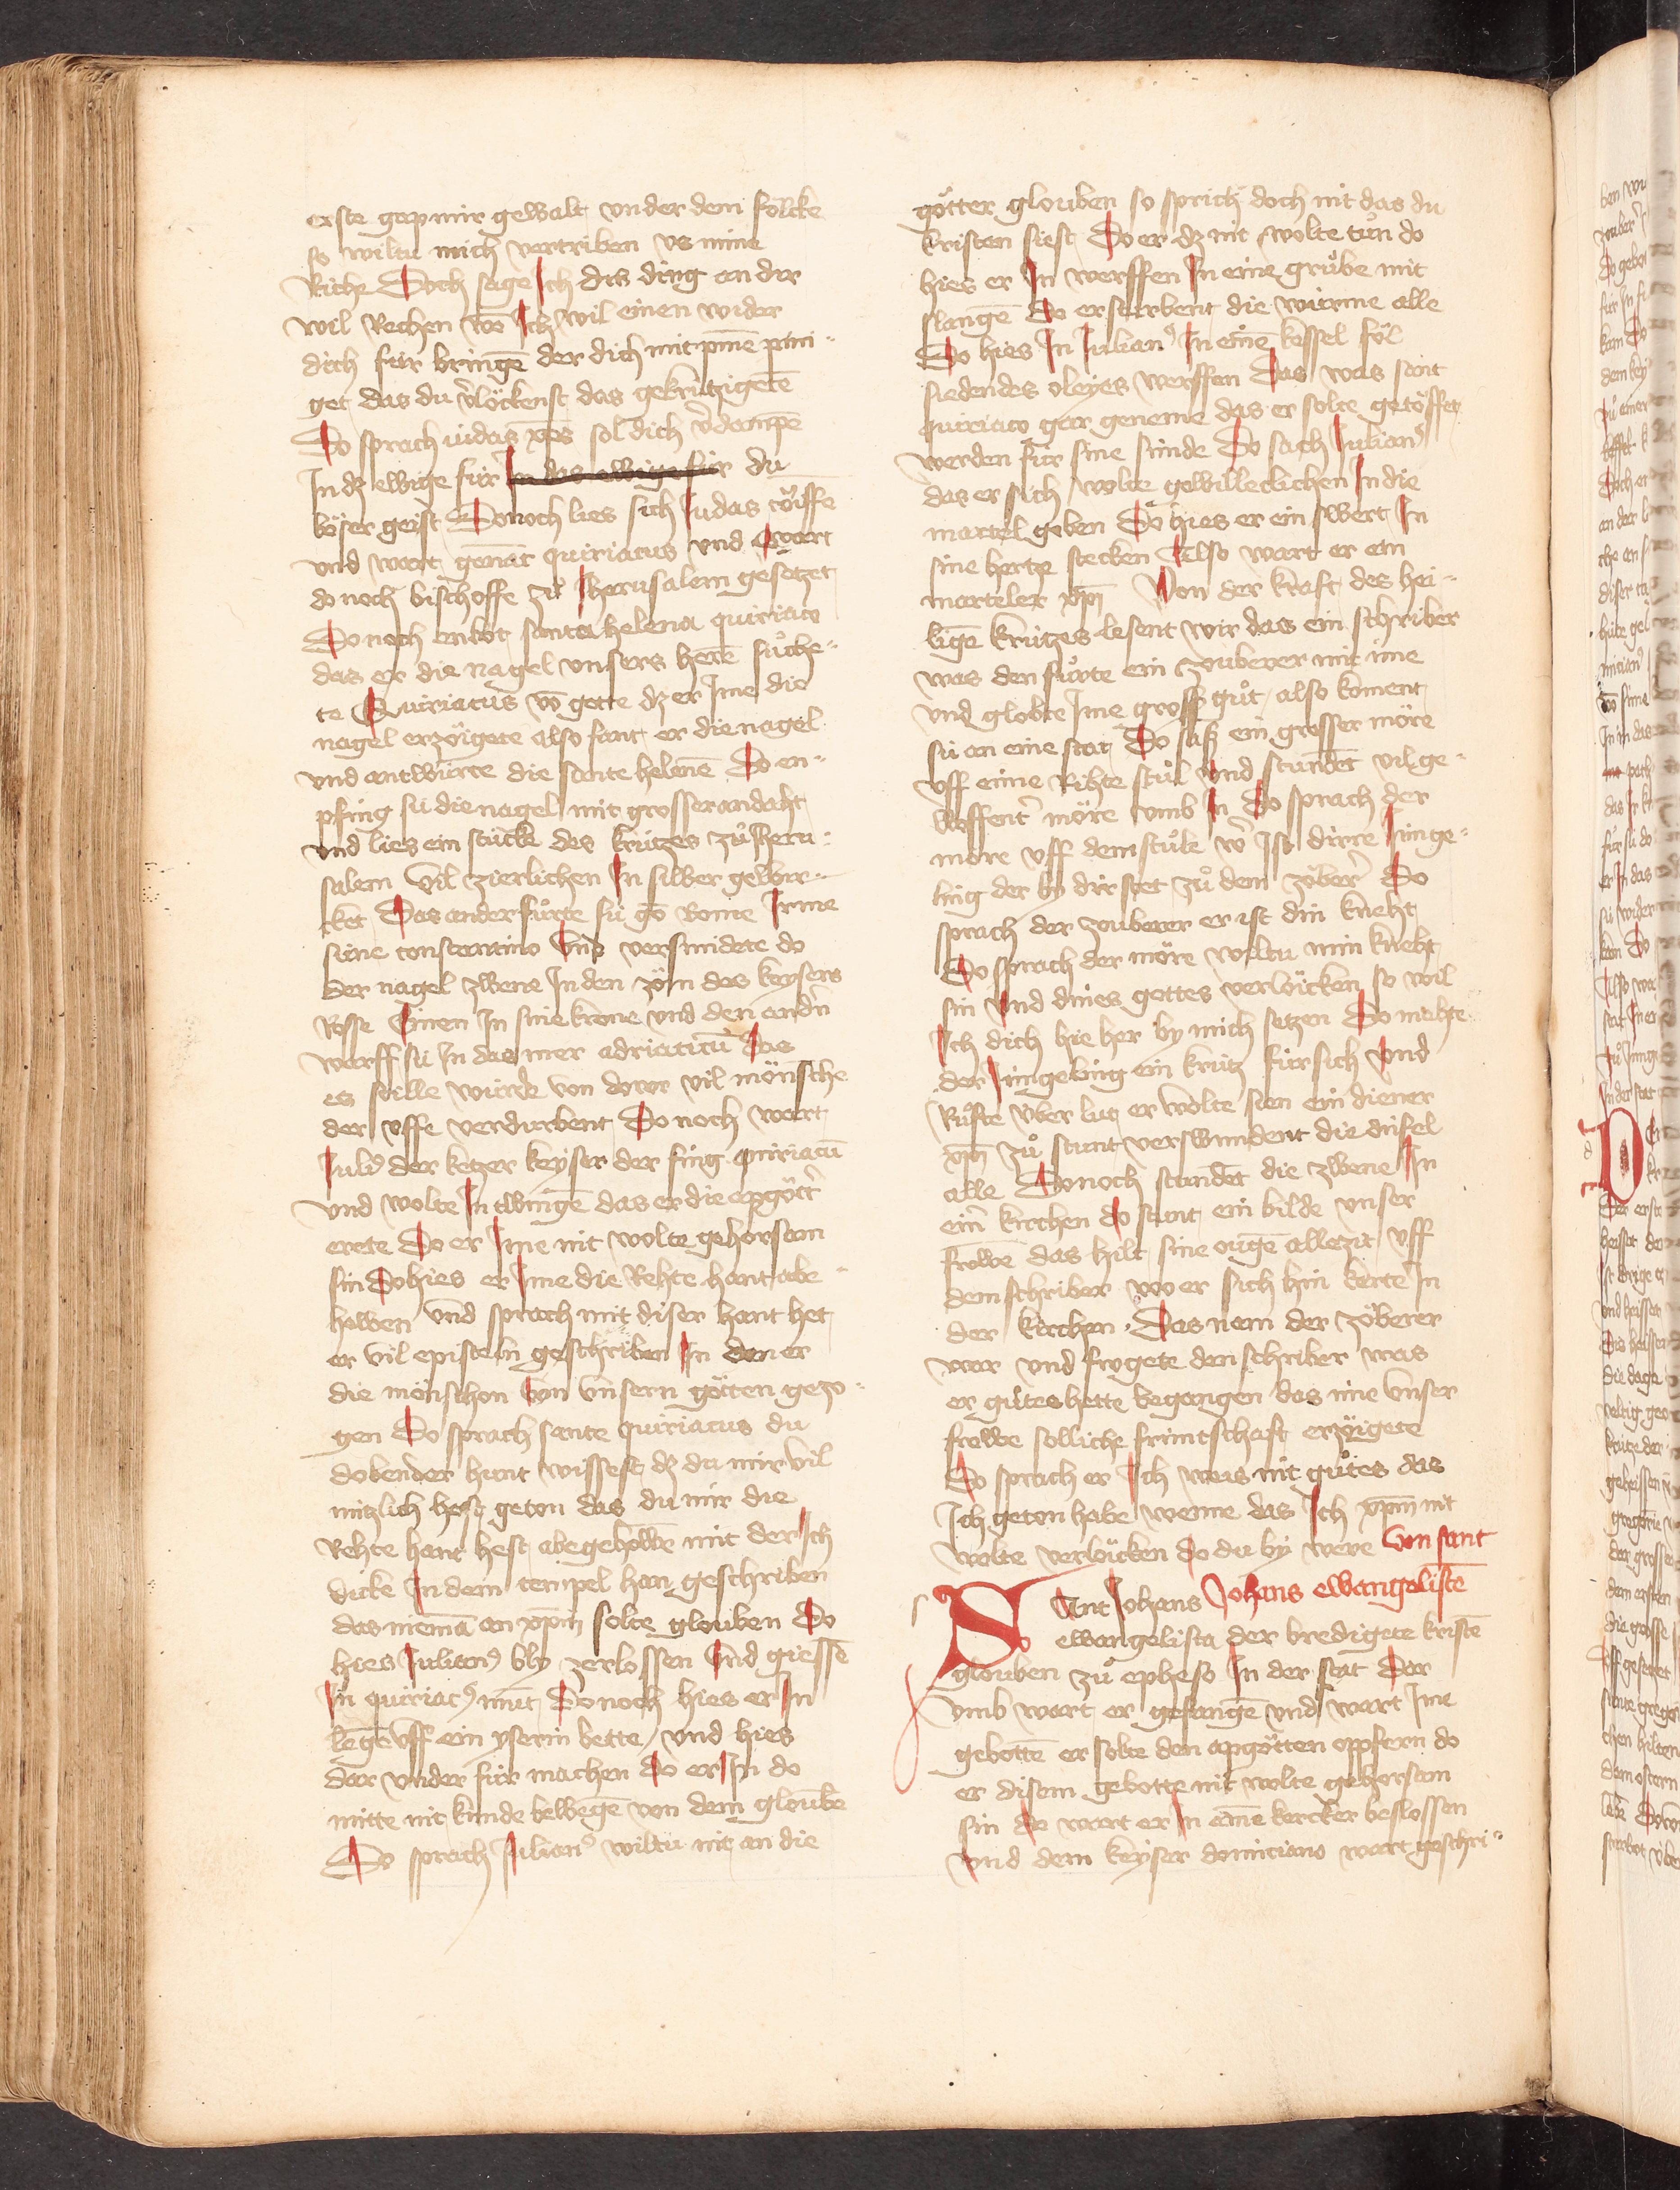 erste gap mir gewalt vnder dem fölcke
so wiltu mich vertriben vs mine
Riche Doch sage Ich das ding an dir
wil Rechen wō Ich wil einen wider
dich für bringē der dich mit pine pini-
get das du v̄löckenst das gekrützigetē
Do sprach iudas xp̄s sol dich v̄dampē
In dz ewige für In das ewige für du
böser geist Donoch lies sich Iudas töiffē
vnd wart genāt quiriacus vnd wart
do noch bischoffe zů Iherusalem gesetzet
Donoch enbot santa helena quiriaco
das er die nagel vnsers herē sůche-
te Quiriacus vō gotte dz er Ime die
nagel erzöigete also fant er die nagel
vnd antwürte die sante helenē Do en-
pfing sü die nagel mit grosser andaht
vnd lies ein stücke des krützes zů Iheru-
salem vil zierlichen In silber gewir-
cket Das ander fůrte sü gō Rome Irme
süne constantino Vnd versmidete do
der nagel zwene In den zöm des keysers
Rosse Einen In sine krone vnd den andn̄
warff sü In das mer adriaticū Das
es stille würde von dowor vil mönsche
der vffe verdurbent Do noch wart
Iuliꝰ der ketzer keyser der fing quiriacū
vnd wolte In twingē das er die apgött̄
erete Do er Ime nit wolte gehorsam
sin Do hies er Ime die Rehte hant abe
howen vnd sprach mit diser hant het
er vil episteln geschriben In den er
die mönschen von vnsern götten gezo-
gen Do sprach sante quiriacus du
dobender hunt wissest dz du mir vil
nützlich hest geton das du mir die
Rehte hant hest abegehowē mit der Ich
dicke In dem tempel han geschriben
das niemā an xpm̄ solte glouben Do
hies Iulianꝰ bly zerlossen Vnd giessē
In quiriacꝰ mūt Donoch hies er In
legē vff ein yserin bette / vnd hies
dar vnder für machen do er In do
mitte nit kunde bewegē von dem gloubē
Do sprach Iulianꝰ wiltu nit an die
götter glouben so sprich doch nit das du
kristen siest Do er dz nit wolte tůn do
hies er In werffen In eine grůbe mit
slangē Do ersturbent die würme alle
Do hies In Iulianꝰ In einē kessel föl
siedendes oleyes werffen Das was sant
quiriaco gar geneme das er solte getöffet
werden für sine sünde Do sach Iulianꝰ
das er sich wolte gewilleclichen In die
martel geben Do hies er ein swert In
sine hertze stecken Also wart er ein
marteler xp̄i Von der kraft des hei-
ligē krützes lesent wir das ein schriber
was den fůrte ein zouberer mit ime
vnd globte Ime gross gůt / also koment
sü an eine stat Do sass ein grosser möre
vff eime Rihte stůl Vnd stundēt vil ge-
woffent̄ möre vmb In Do sprach der
möre vff dem stůle w̄ Ist dirre Iunge-
ling der by dir stet zů dem zöber̄ Do
sprach der zouberer er ist din kneht
Do sprach der möre wiltu min kneht
sin vnd dines gottes verlöicken so wil
Ich dich hie her by mich setzen Do mahte
der Iüngeling ein krütz für sich Vnd
Růfte vber lut er wolte sien ein diener
xpī zů stunt verswundent die düfel
alle Donoch stundēt die zwene In
ein̄ kirchen do stunt ein bilde vnser
frowe das hilt sine ougē allezit vff
dem schriber wo er sich hin kerte In
der kirchen. Das nam der zöberer
war vnd frogete den schriber was
er gůtes hette begangen das ime vnser
frowe solliche früntschaft erzöigete
Do sprach er Ich weis nit gůtes das
Ich geton habe wenne das Ich xpm̄ nit
wolte verlöicken do du by were Von sant
Johans ewangelistē
SAnt Johans
ewangelista der bredigete kristē
glouben zů epheso In der stat Dar
vmb wart er gefangē vnd wart Ime
gebottē er solte den apgötten oppfern do
er disem gebotte nit wolte gehorsam
sin do wart er In einē kercker beslossen
vnd dem keyser domiciano wart geschri-